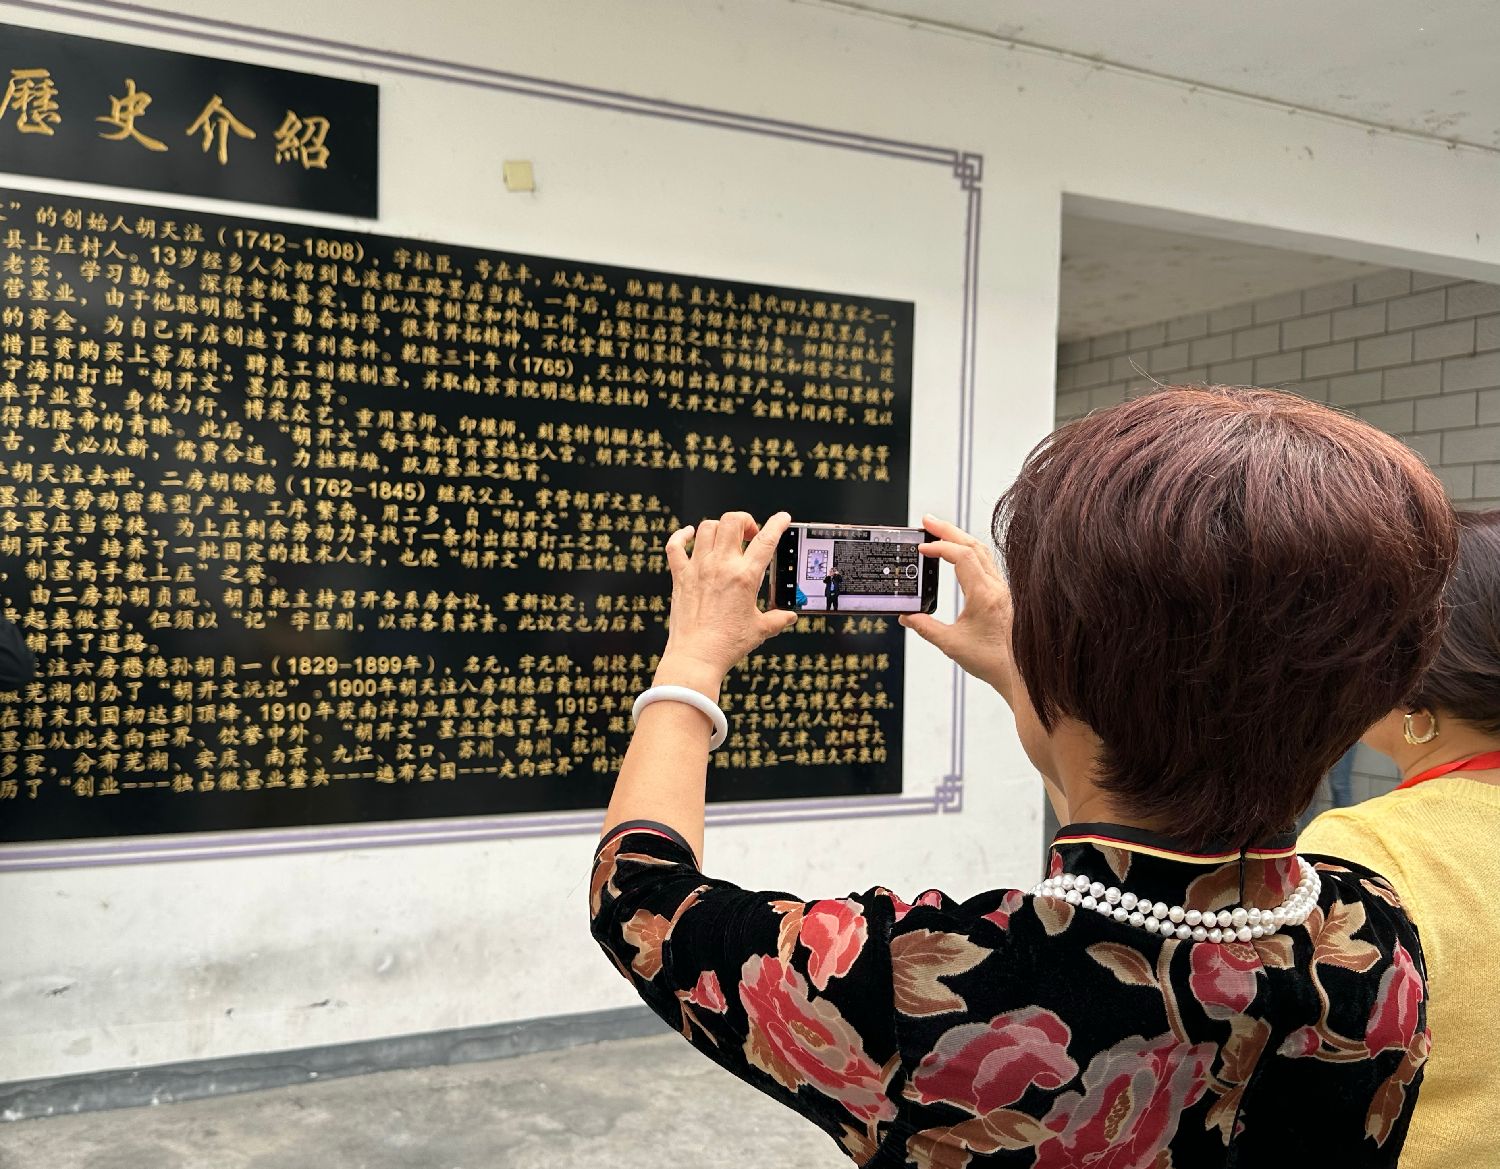 歷史介紹
”的创始人胡天注（1742-1808），字柱臣，号在丰，从九品，驰赠奉直大夫，清代四大徽墨家之一，
县上庄村人。13岁经乡人介绍到屯溪程正路墨店当徒，一年后，经程正路介绍去休宁县江启茂墨店，天
老实，学习勤奋，深得老板喜爱，自此从事制墨和外销工作，后娶江启茂之独生女为妻。初期承租屯溪
营墨业，由于他聪明能干，勤奋好学，很有开拓精神，不仅掌握了制墨技术、市场情况和经营之道，还
的资金，为自己开店创造了有利条件。乾隆三十年（1765），天注公为创出高质量产品，挑选旧墨模中
惜巨资购买上等原料，聘良工刻模制墨，并取南京贡院明远楼悬挂的“天开文运”金匾中间两字，冠以
宁海阳打出“胡开文”墨店店号。
率子业墨，身体力行，搏采众艺，重用墨师、印模师，刻意特制骊龙珠、紫玉光、圭璧光、金殿余香等
得乾隆帝的青睐。此后，“胡开文”每年都有贡墨选送入宫。胡开文墨在市场竞争中，重质量、守诚
古，式必从新，儒贾合道，力挫群雄，跃居墨业之魁首。
胡天注去世，二房胡馀德（1762-1845）继承父业，掌管胡开文墨业，
墨业是劳动密集型产业，工序繁杂，用工多，自“胡开文”墨业兴盛以
各墨庄当学徒，为上庄剩余劳动力寻找了一条外出经商打工之路，给上
胡开文”培养了一批固定的技术人才，也使“胡开文”的商业机密等得
，制墨高手数上庄”之誉。
由二房孙胡贞观、胡贞乾主持召开各系房会议，重新议定：胡天注派
号起桌做墨，但须以“记”字区别，以示各负其责。此议定也为后来“ 徽州、走向全
铺平了道路。
注六房懋德孙胡贞一（1829-1899年），名元，字元阶，例授奉直 开文墨业走出徽州第
芜湖创办了“胡开文沅记”。1900年胡天注八房硕德后裔胡祥钧在 “广户氏老胡开文”。
在清末民国初达到顶峰，1910年获南洋劝业展览会银奖，1915年 墨”获巴拿马博览会金奖，
墨业从此走向世界、饮誉中外。“胡开文”墨业逾越百年历史， 下子孙几代人的心血，
多家，分布芜湖、安庆、南京、九江、汉口、苏州、扬州、杭州、 北京、天津、沈阳等大
历了“创业---独占徽墨业鳌头---遍布全国---走向世界”的 国制墨业一块经久不衰的